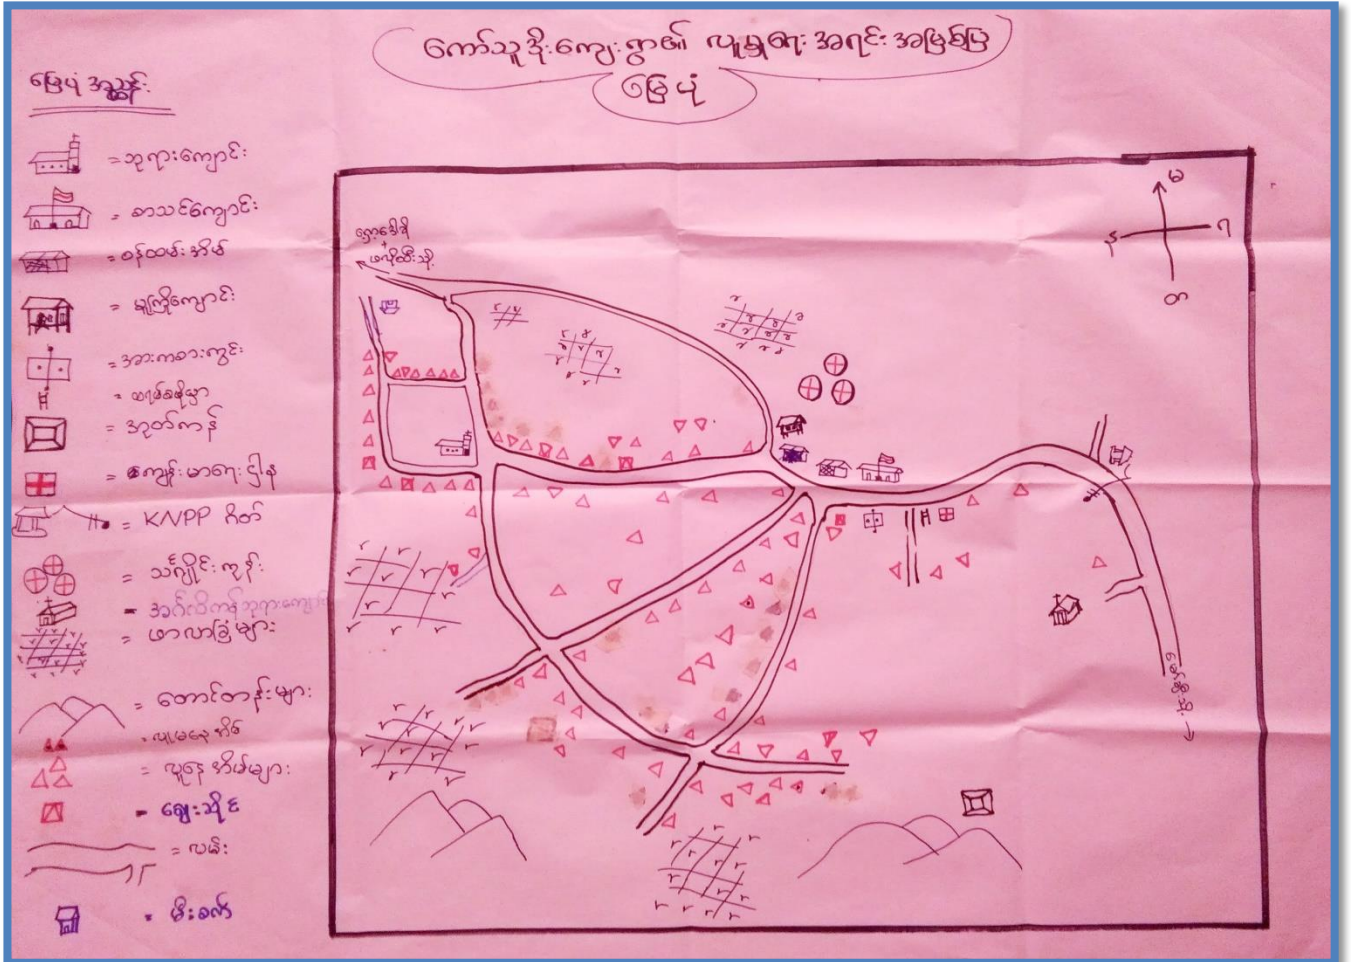 ကော်သူဒိုးကျေးရွာ၏ လူမှုရေး အရင်းအမြစ်ပြ
မြေပုံ
မြေပုံ အညွှန်း
= ဘုရားကျောင်း
= စာသင်ကျောင်း
= ဝန်ထမ်းအိမ်
= မူကြိုကျောင်း
= အားကစားကွင်း
= အုတ်ကန်
= ကျန်းမာရေးဌာန
= KNPP ဂိတ်
= သင်္ချိုင်းကုန်း
= အင်္ဂလိကန်ဘုရားကျောင်း
= ဖာလာခြံများ
= တောင်တန်းများ
= လူမနေအိမ်
= လူနေအိမ်များ
= ဈေးဆိုင်
= လမ်း
= မီးစက်
မ
န
တ